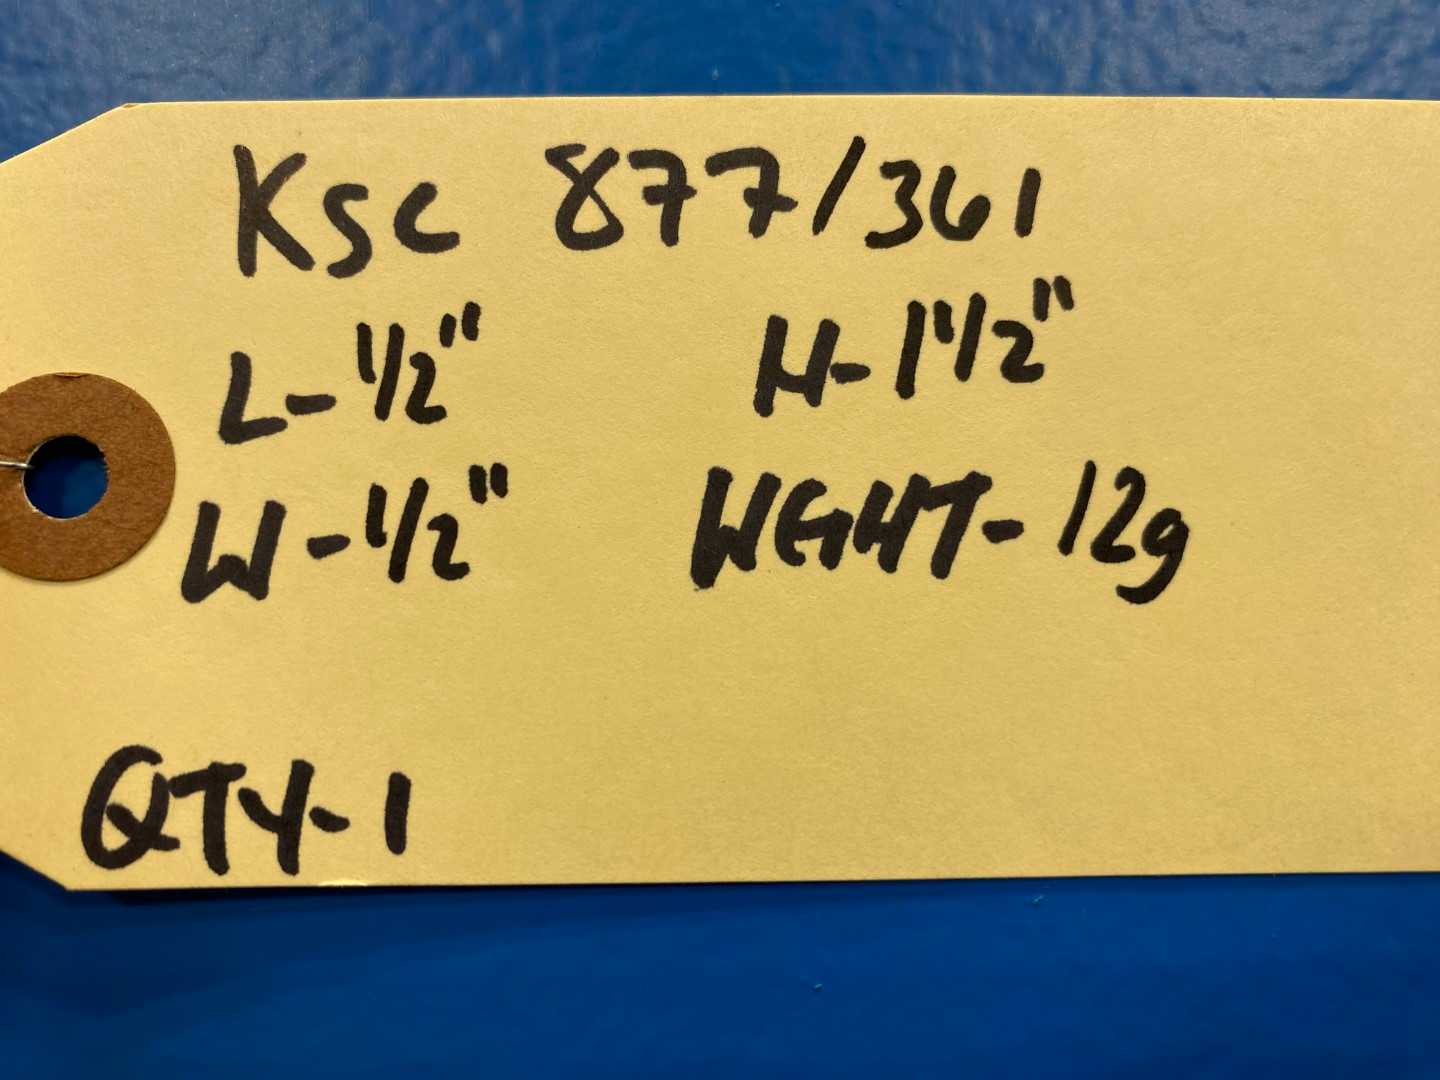 KSC 877/361
L-1/2" H-1 1/2"
W-1/2" WGHT-12g
QTY-1